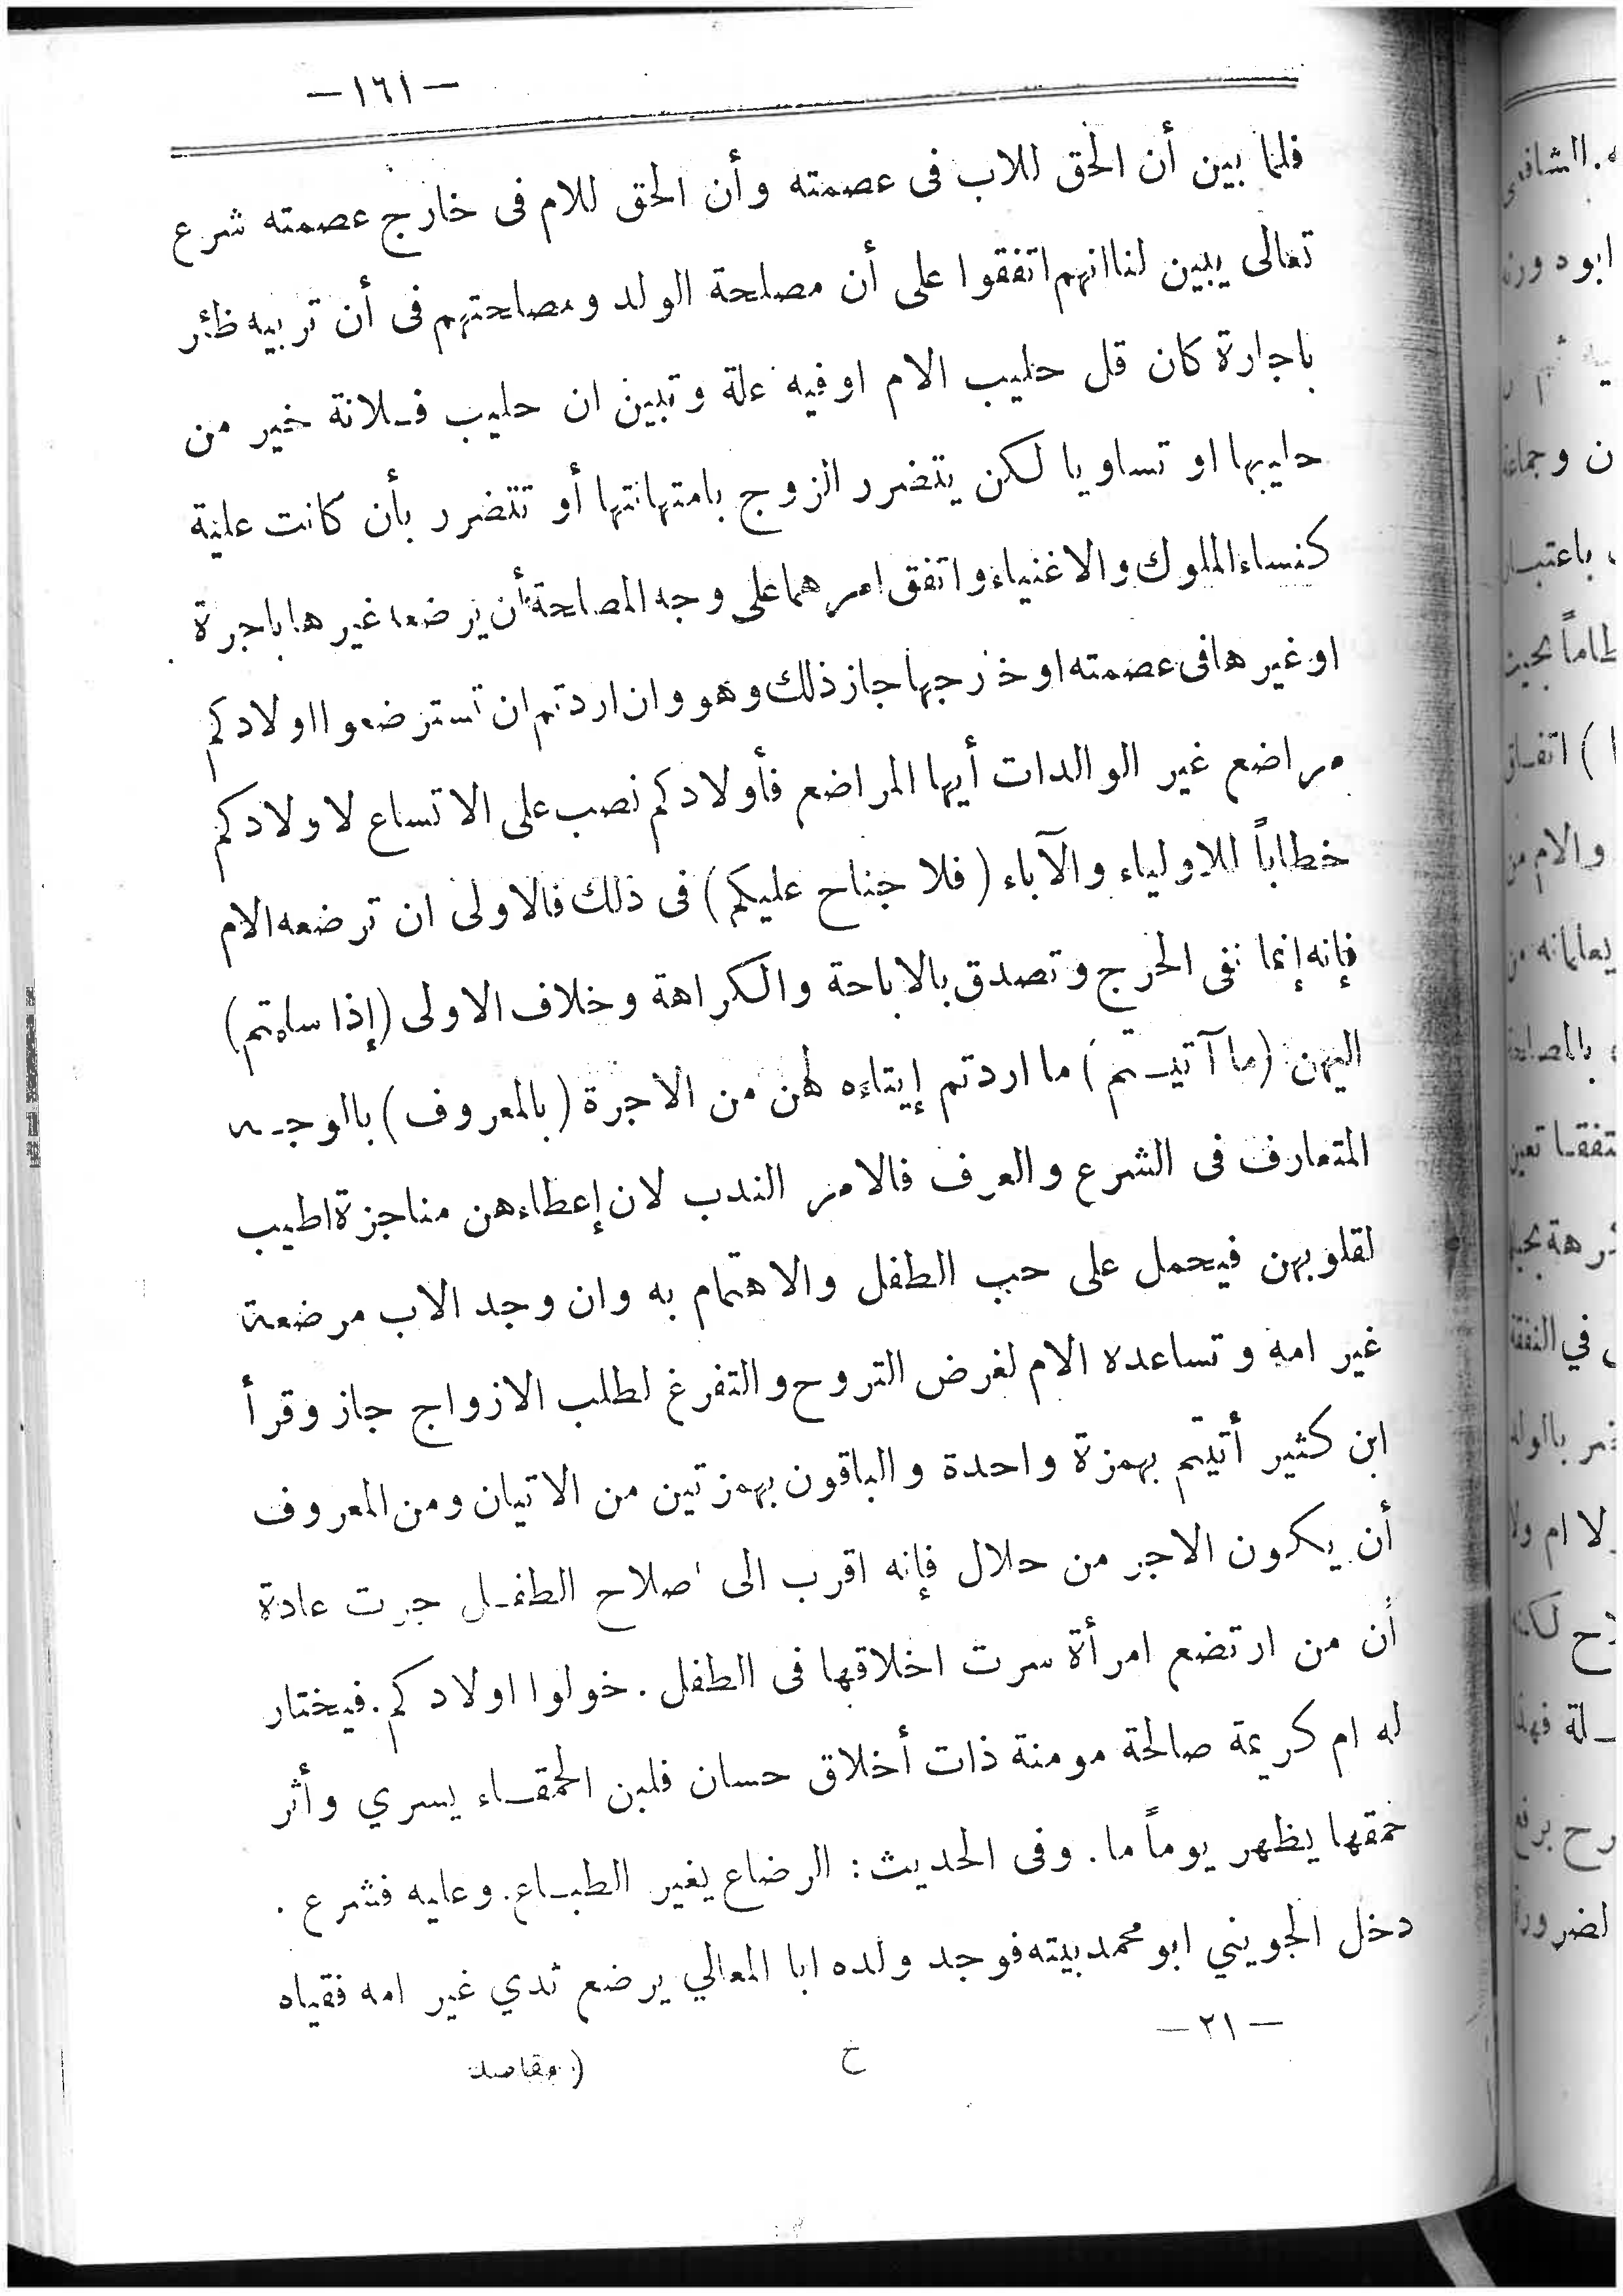 -١٦١-
فلما بين أن الحق للاب فى عصمته وأن الحق للام فى خارج عصمته شرع
تعالى يبين لنا انهم اتفقوا على أن مصلحة الولد ومصلحتهم فى أن تربيه ظئر
باجارة كان قل حليب الام او فيه علة وتبين ان حليب فلانة خير من
حليبها او تساويا لكن يتضرر الزوج بامتهانتها أو تتضرر بأن كانت علية
كنساء الملوك والاغنياء واتفق امرهما على وجه المصلحة أن يرضعه غيرها باجرة
او غيرها فى عصمته او خارجها جاز ذلك وهو وان اردتم ان تسترضعوا اولادكم
مراضع غير الوالدات أيها المراضع فأولادكم نصب على الاتساع لاولادكم
خطاباً للاولياء والآباء (فلا جناح عليكم) فى ذلك فالاولى ان ترضعه الام
فإنه إنما نفى الحرج وتصدق بالاباحة والكراهة وخلاف الاولى (إذا سلمتم)
اليهن (ما آتيتم) ما اردتم إيتاءه لهن من الاجرة (بالمعروف) بالوجه
المتعارف فى الشرع والعرف فالامر الندب لان إعطاءهن مناجزة اطيب
لقلوبهن فيحمل على حب الطفل والاهتمام به وان وجد الاب مرضعة
غير امه وتساعده الام لغرض التروح والتفرغ لطلب الازواج جاز وقرأ
ابن كثير أتيتم بهمزة واحدة والباقون بهمزتين من الاتيان ومن المعروف
أن يكون الاجر من حلال فإنه اقرب الى صلاح الطفل جرت عادة
أن من ارتضع امرأة سرت اخلاقها فى الطفل. خولوا اولادكم. فيختار
له ام كريمة صالحة مومنة ذات أخلاق حسان فلبن الحمقاء يسري وأثر
حمقها يظهر يوماً ما. وفى الحديث: الرضاع يغير الطباع. وعليه فشرع.
دخل الجويني ابو محمد بيته فوجد ولده ابا المعالي يرضع ثدي غير امه فقياه
-٢١-
خ
(مقاصد